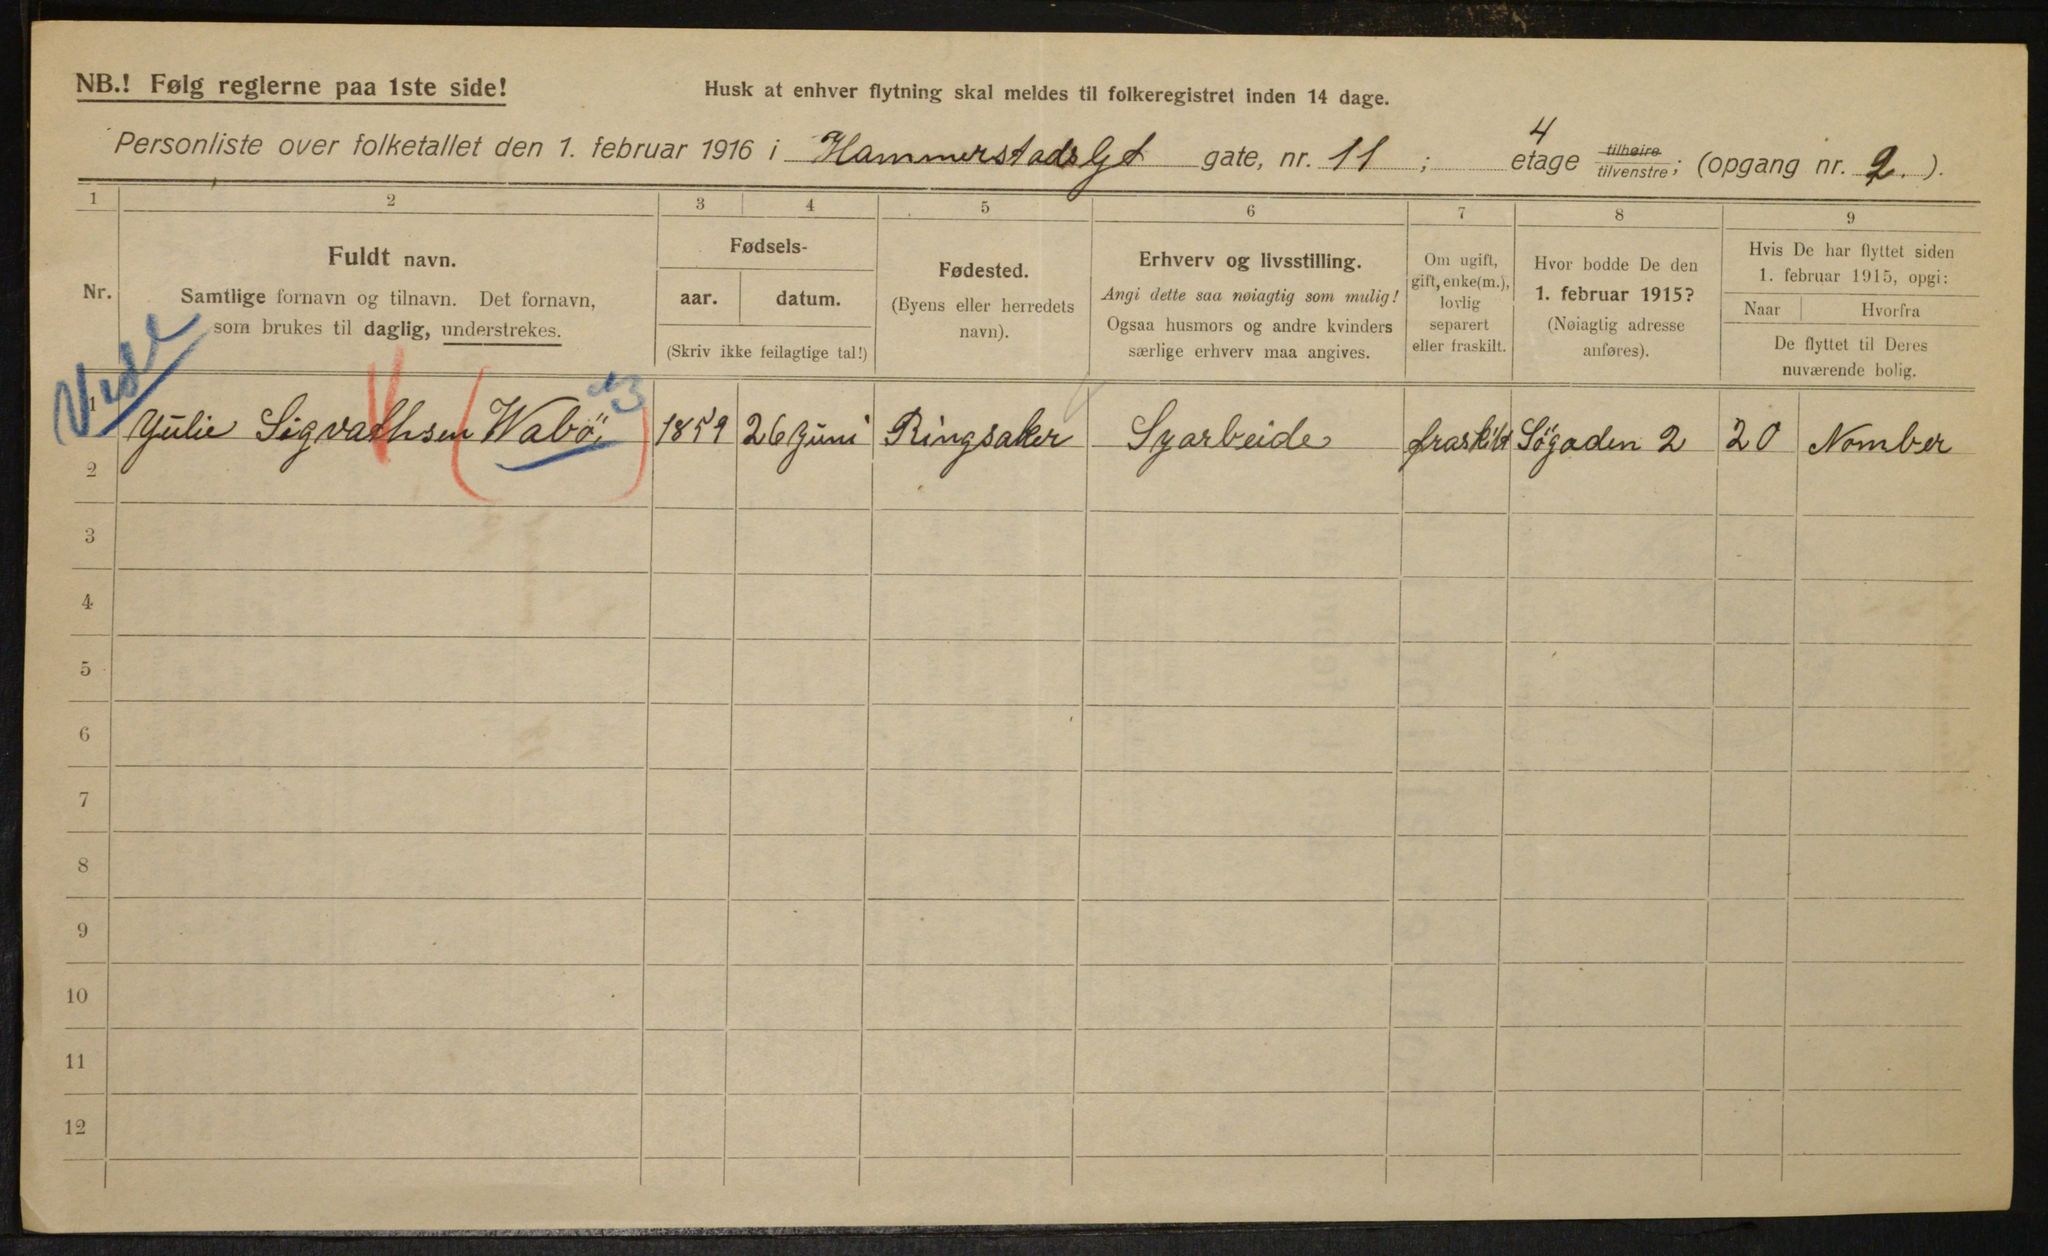 NB.! Følg reglerne paa 1ste side!
Husk at enhver flytning skal meldes til folkeregistret inden 14 dage.
Personliste over folketallet den 1. februar 1916 i HammerstadsGt gate, nr. 11 ; 4 etage tilhøire tilvenstre; (opgang nr. 2. ).
1 2 3 4 5 6 7 8 9
Nr.
Fuldt navn.
Samtlige fornavn og tilnavn. Det fornavn,
som brukes til daglig, understrekes.
Fødsels-
aar. datum.
(Skriv ikke feilagtige tal!)
Fødested.
(Byens eller herredets
navn).
Erhverv og livsstilling.
Angi dette saa nøiagtig som mulig!
Ogsaa husmors og andre kvinders
særlige erhverv maa angives.
Om ugift,
gift, enke(m.),
lovlig
separert
eller fraskilt.
Hvor bodde De den
1. februar 1915?
(Nøiagtig adresse
anføres).
Hvis De har flyttet siden
1. februar 1915, opgi:
Naar Hvorfra
De flyttet til Deres
nuværende bolig.
Vide
13
1 Yulie Sigvathsen (Wabö) 1859 26 Juni Ringsaker Syarbeide fraskilt Sögaden 2 20 Nomber
2
3
4
5
6
7
8
9
10
11
12